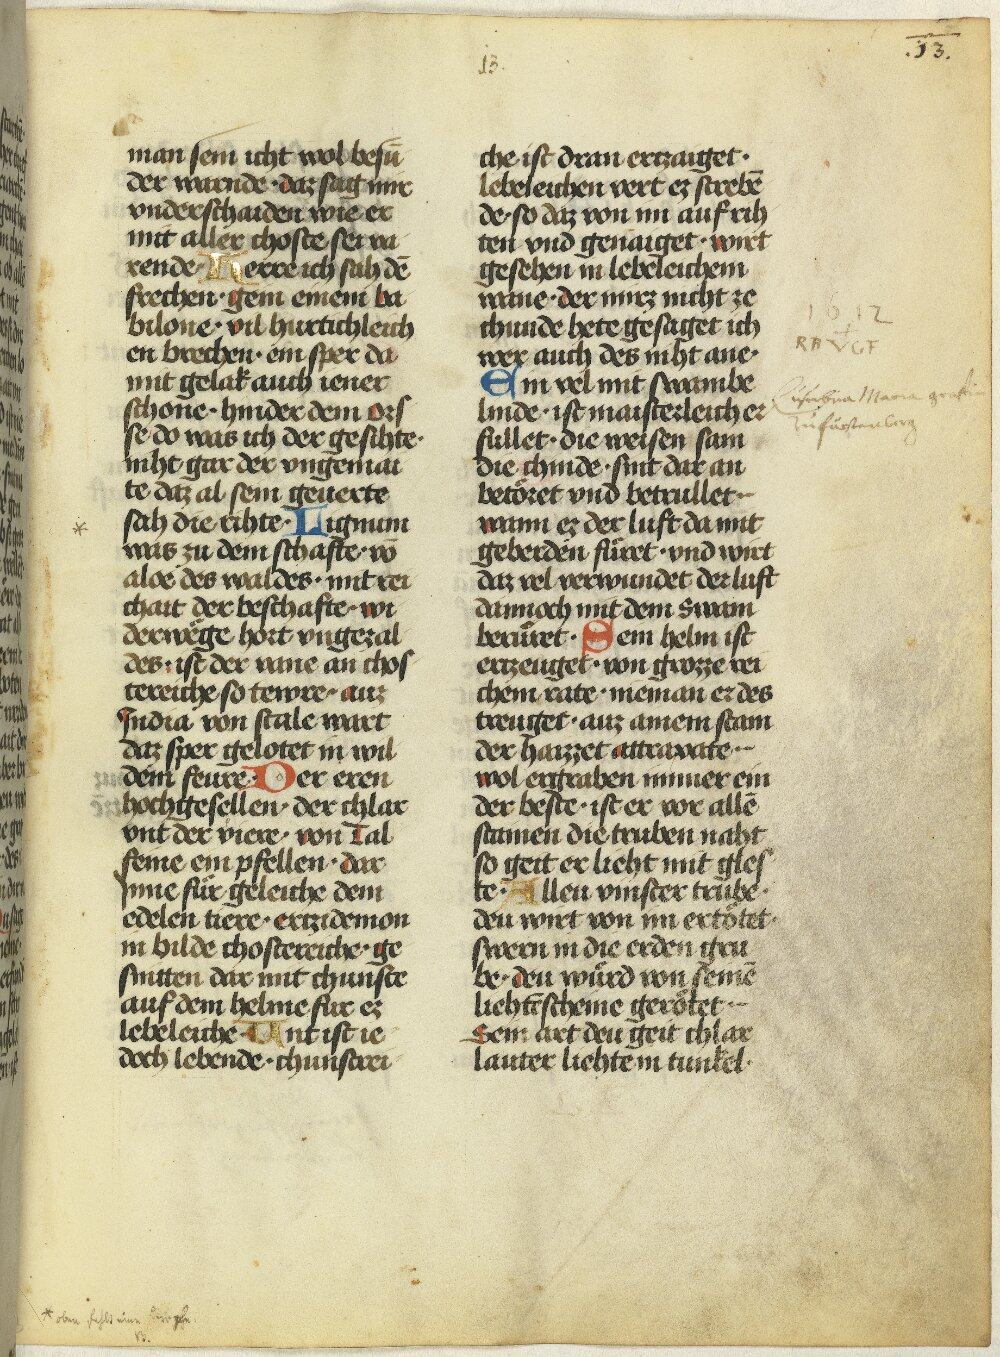 .13.
13.
man sein icht wol besū
der warnde · daz sag mir
vnderschaiden wie er
mit aller choste sei va
rende · Herre ich sah dē
frechen · gein einem ba
bilone · vil hurtichleich
en brechen · ein sper da
mit gelak auch iener
schone · hinder dem ors
se do was ich der geschte ·
niht gar der vngemai
te daz al sein geuerte
sah die rihte · Lignum
was zu dem schafte · vō
aloe des waldes · mit rei
chait der beschafte · wi
derwege hort vngezal
des · ist der vane an chos
tereiche so tewre · auz
India von stale wart
daz sper gelotet in wil
dem feure · Der eren
hochgesellen · der chlar
vnt der viere · von Tal
feine ein pfellen · dar
jnne für geleiche dem
edelen tiere · ertzidemon
in bilde chostereiche · ge
sniten dar mit chunste
auf dem helme fur ez
lebeleiche · Unt ist ie
doch lebende · chunstrei
che ist dran ertzaiget ·
lebeleichen vert ez strebē
de · so daz von im auf rih
ten vnd genaiget · wirt
gesehen in lebeleichem
wane · der mirz nicht ze
chunde hete gesaget ich
wer auch des niht ane ·
Ein vel mit swambe
linde · ist maisterleich er
fullet · die weisen sam
die chinde · sint dar an
betöret vnd betrullet ·
wann ez der luft da mit
geberden füret · vnd wirt
daz vel verwundet der luft
dannoch mit dem swam
berüret · Sein helm ist
ertzeuget · von grozze rei
chem rate · nieman ez des
treuget · auz ainem stam
der haizzet attraxate ·
wol ergraben immer ein
der beste · ist er vor allē
stamen die truben naht
so geit er lieht mit gles
te · Alleu vinster trübe ·
deu wirt von im ertötet ·
swern in die erden gru
be · deu würd von seinē
liehtescheine gerötet ·
Sein art deu geit chlar
lauter liehte in tunkel ·
1612
Maria grefin
zu fürstenberg
*
* oben fehlt eine Strophe.